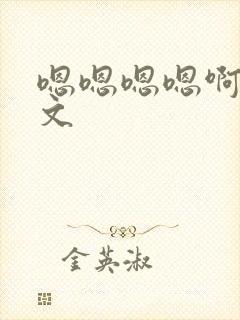 嗯嗯嗯嗯啊
文
金英淑